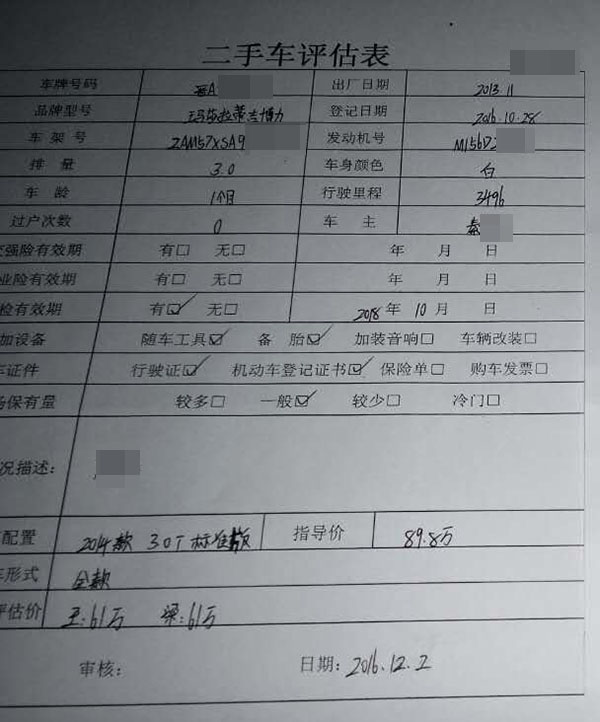 二手车评估表
车牌号码 晋A 出厂日期 2013.11
品牌型号 玛莎拉蒂吉博力 登记日期 2016.10.28
车架号 ZAM57XSA9 发动机号 M156D2
排量 3.0 车身颜色 白
车龄 1个月 行驶里程 3496
过户次数 0 车主 秦
强险有效期 有□ 无□ 年 月 日
业险有效期 有□ 无□ 年 月 日
检有效期 有☑ 无□ 2018年 10月 日
加设备 随车工具☑ 备胎☑ 加装音响□ 车辆改装□
证件 行驶证☑ 机动车登记证书☑ 保险单□ 购车发票□
保有量 较多□ 一般☑ 较少□ 冷门□
况描述:
配置 2014款 3.0T 标准版 指导价 89.8万
形式 全款
评估价 王:61万 梁:61万
审核: 日期: 2016.12.2